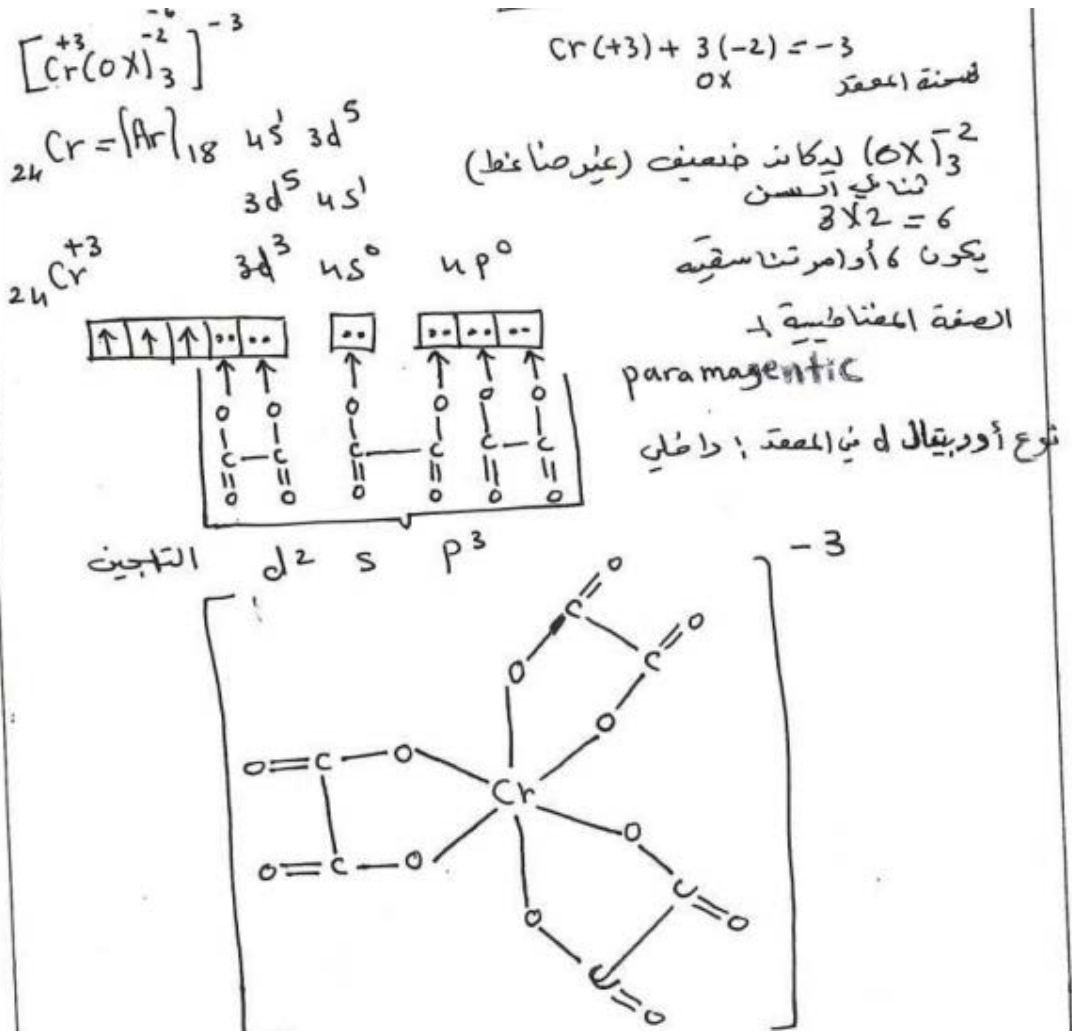 [Cr⁺³(OX)₃⁻²]⁻³ ⁻⁶
Cr(+3) + 3(-2) = -3
OX
شحنة المعقد
₂₄Cr = [Ar]₁₈ 4s¹ 3d⁵
3d⁵ 4s¹
(OX)₃⁻² ليكاند ضعيف (غير ضاغط)
ثنائي السن
3X2 = 6
يكون 6 أواصر تناسقيه
₂₄Cr⁺³ 3d³ 4s⁰ 4p⁰
↑ ↑ ↑ .. .. .. .. .. ..
الصفة المغناطيسية
paramagentic
نوع أوربيتال d في المعقد : داخلي
O O O O O O
C—C C—C C—C
O O O O O O
التهجين d² s p³
-3
C=O
C C=O
O O
O=C—O
Cr
O=C—O O
O C=O
C=O